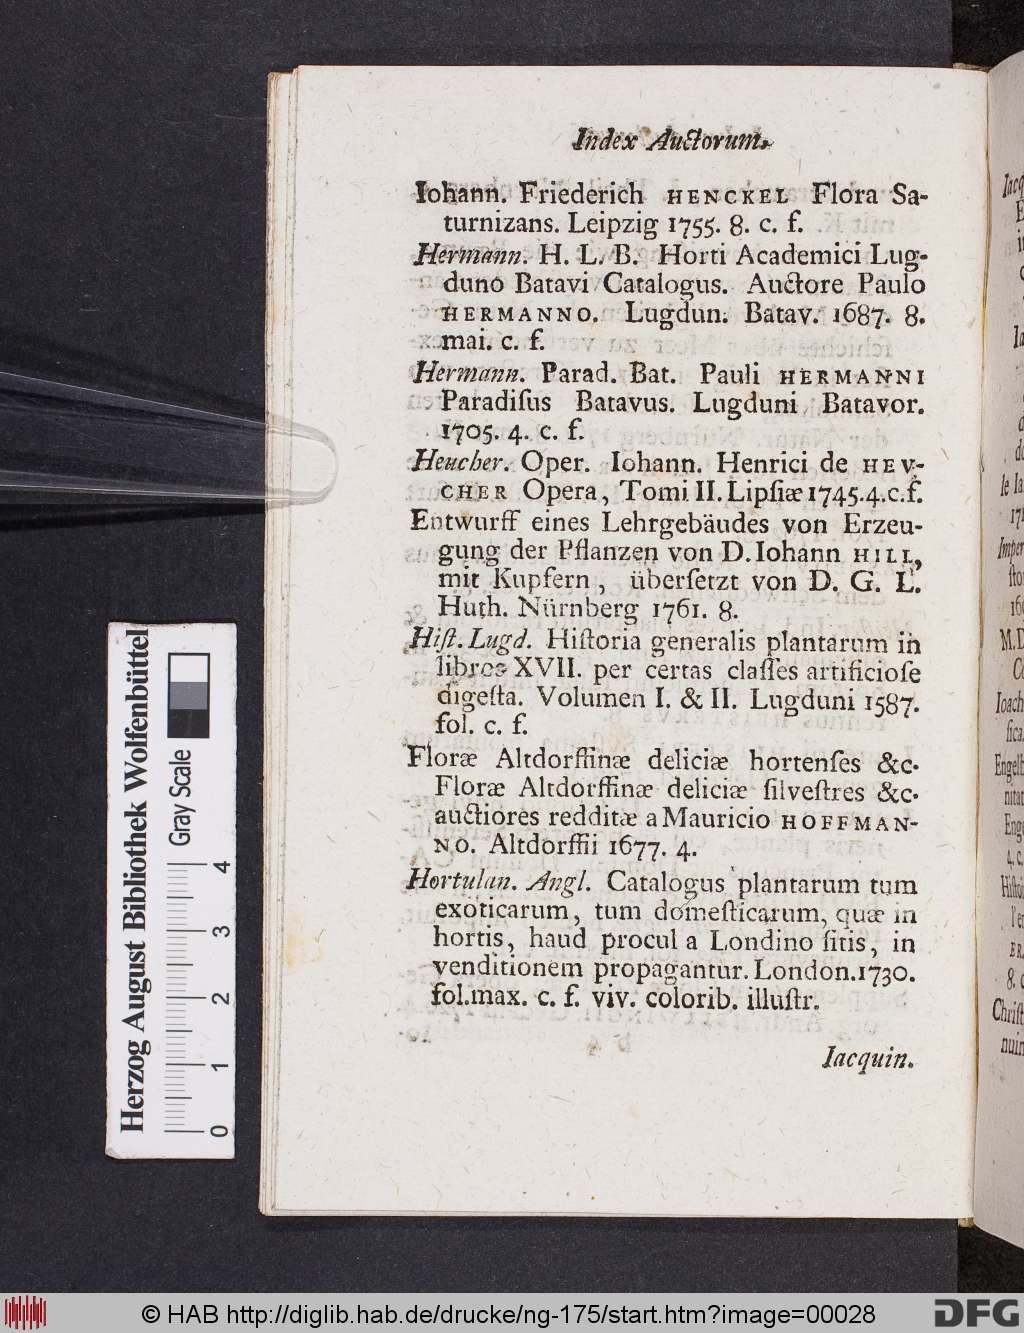 Index Auctorum.
Iohann. Friederich HENCKEL Flora Sa-
turnizans. Leipzig 1755. 8. c. f.
Hermann. H. L. B. Horti Academici Lug-
duno Batavi Catalogus. Auctore Paulo
HERMANNO. Lugdun. Batav. 1687. 8.
mai. c. f.
Hermann. Parad. Bat. Pauli HERMANNI
Paradiſus Batavus. Lugduni Batavor.
1705. 4. c. f.
Heucher. Oper. Iohann. Henrici de HEV-
CHER Opera, Tomi II. Lipſiæ 1745. 4. c. f.
Entwurff eines Lehrgebäudes von Erzeu-
gung der Pflanzen von D. Iohann HILL,
mit Kupfern, überſetzt von D. G. L.
Huth. Nürnberg 1761. 8.
Hiſt. Lugd. Hiſtoria generalis plantarum in
libros XVII. per certas claſſes artificioſe
digeſta. Volumen I. & II. Lugduni 1587.
fol. c. f.
Floræ Altdorffinæ deliciæ hortenſes &c.
Floræ Altdorffinæ deliciæ ſilveſtres &c.
auctiores redditæ a Mauricio HOFFMAN-
NO. Altdorffii 1677. 4.
Hortulan. Angl. Catalogus plantarum tum
exoticarum, tum domeſticarum, quæ in
hortis, haud procul a Londino ſitis, in
venditionem propagantur. London. 1730.
fol. max. c. f. viv. colorib. illuſtr.
Iacquin.
Herzog August Bibliothek Wolfenbüttel
Gray Scale
0 1 2 3 4
© HAB http://diglib.hab.de/drucke/ng-175/start.htm?image=00028
DFG